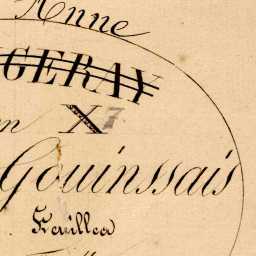 Anne
GERAY
en X 7
Gouinssais
Feuilles